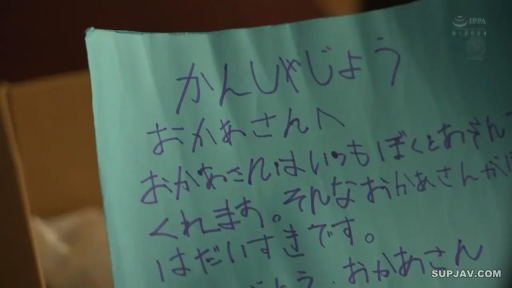 IPPA
かんしゃじょう
おかあさんへ
おかあさんはいつもぼくとあそんで
くれます。そんなおかあさんがぼく
はだいすきです。
おかあさん
SUPJAV.COM